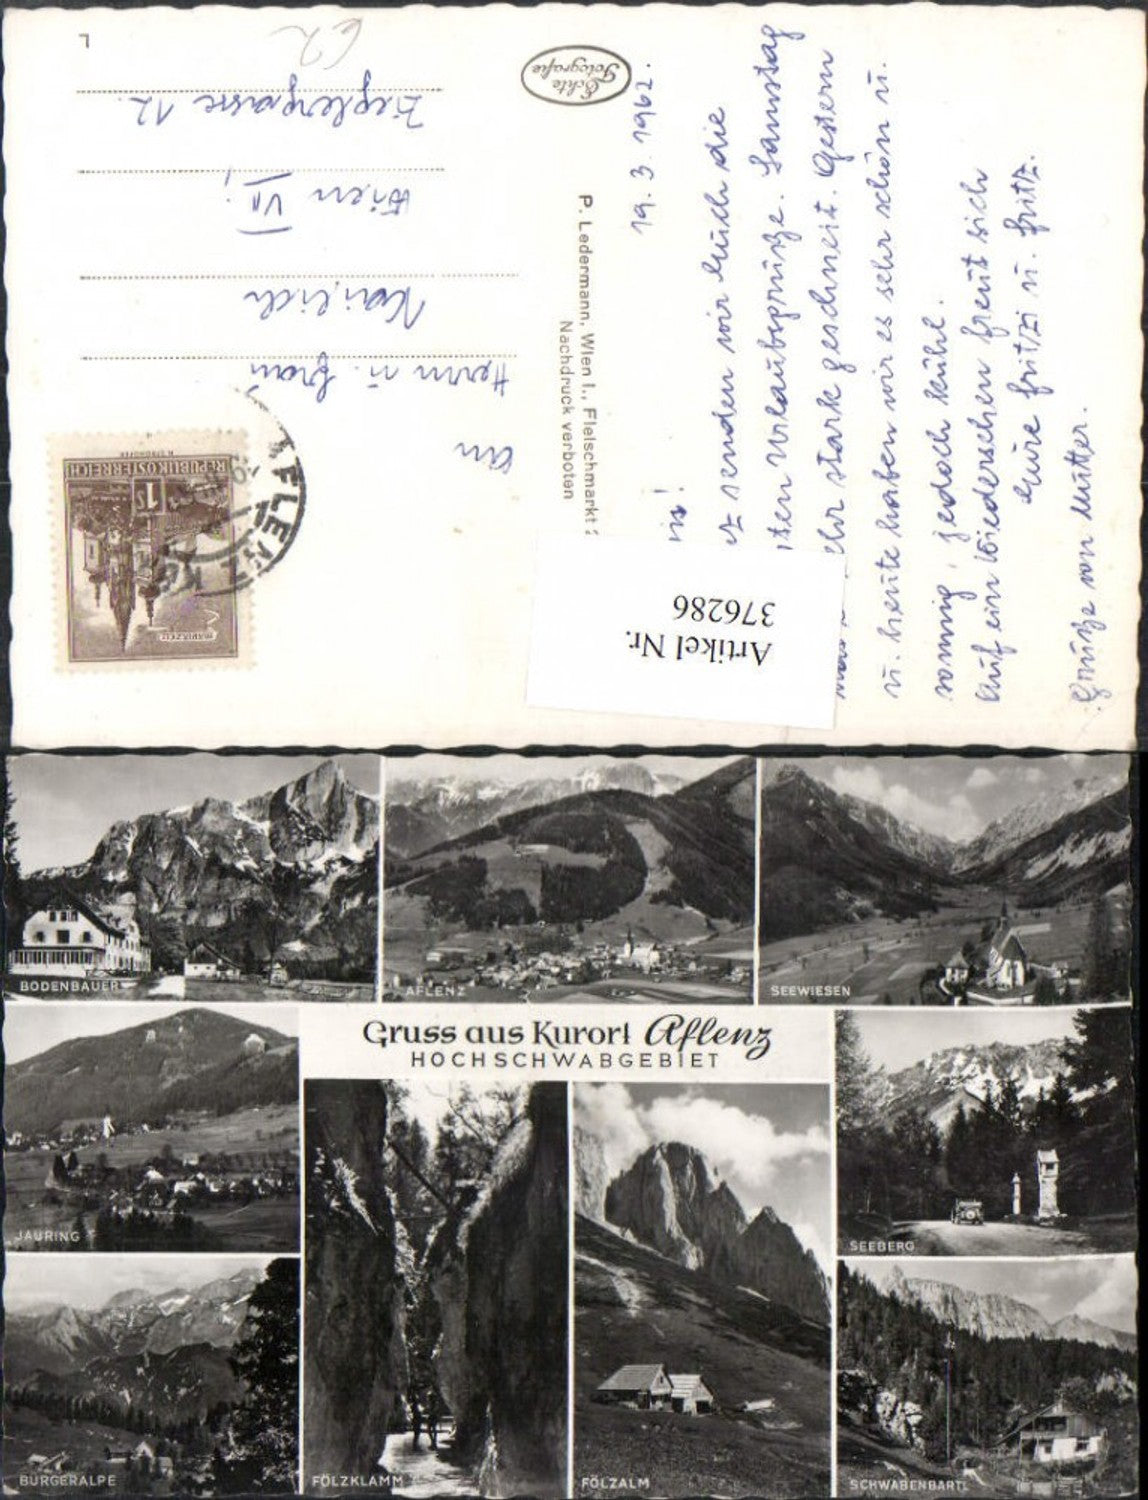 L
62
Echte
Fotografie
An
Herrn u. Frau
Wien VII,
Zieglergasse 12.
REPUBLIK ÖSTERREICH
1 S
MARIAZELL
AFLENZ
P. Ledermann, Wien I., Fleischmarkt
Nachdruck verboten
19. 3. 1962.
senden wir Euch die
Urlaubsgrüße. Samstag
stark geschneit. Gestern
u. heute haben wir es sehr schön u.
sonnig, jedoch kühl.
Auf ein Wiedersehen freut sich
Eure Fritzi u. Fritz.
Grüße von Mutter.
Artikel Nr.
376286
BODENBAUER
AFLENZ
SEEWIESEN
Gruss aus Kurort Aflenz
HOCHSCHWABGEBIET
JAURING
SEEBERG
BÜRGERALPE
FÖLZKLAMM
FÖLZALM
SCHWABENBARTL